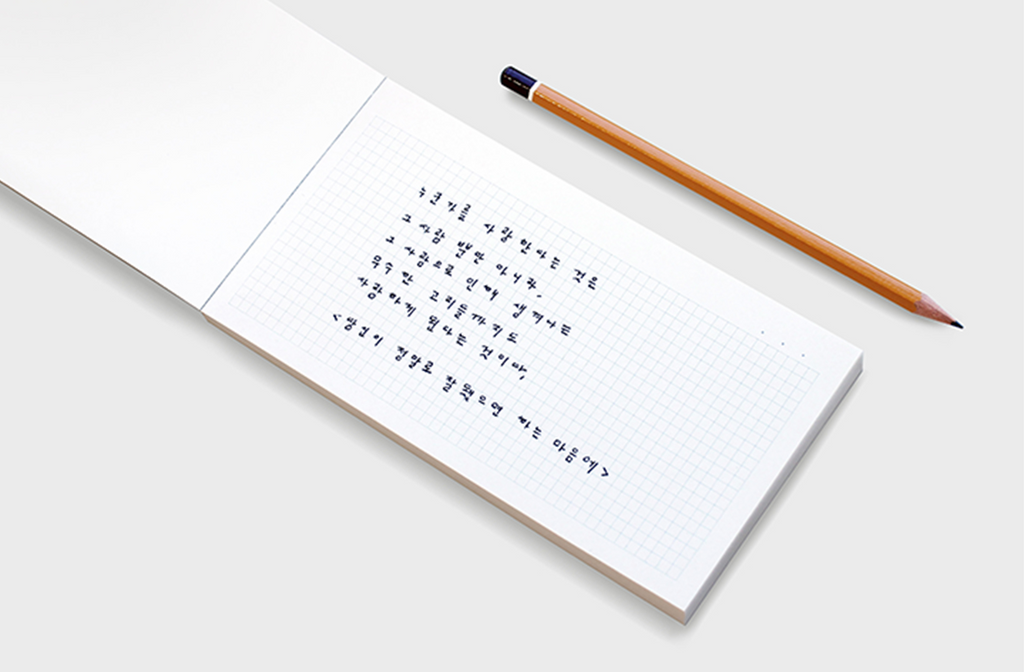 누군가를 사랑 한다는 것은
그 사람 뿐만 아니라,
그 사람으로 인해 생겨나는
무수한 고리들까지도
사랑하게 된다는 것이다,
<당신이 정말로 잘됐으면 하는 마음에>